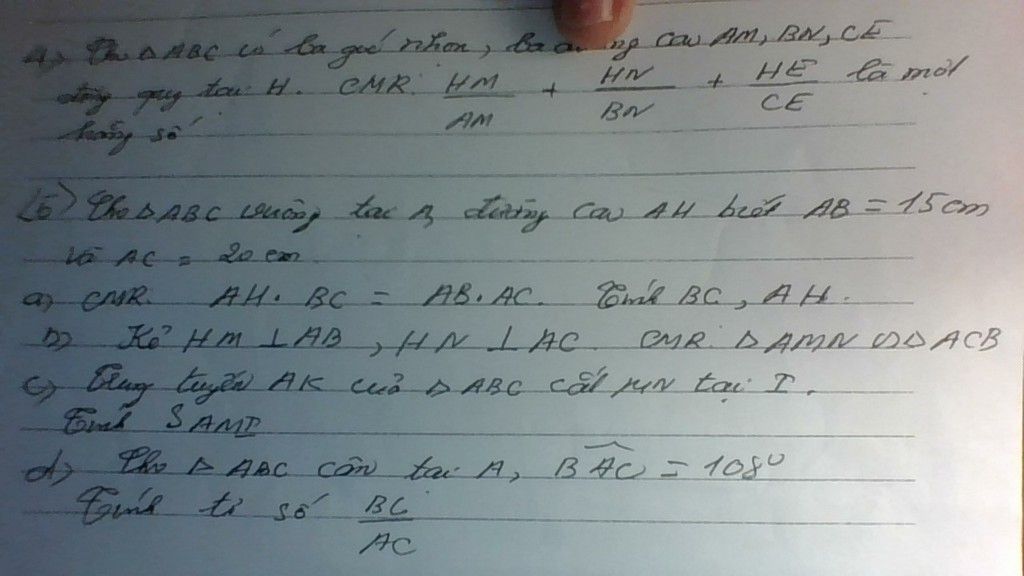 Cho △ABC có ba góc nhọn, ba đường cao AM, BN, CE
đồng quy tại H. CMR. HM/AM + HN/BN + HE/CE là một
hằng số
Cho △ABC vuông tại A, đường cao AH biết AB = 15 cm
và AC = 20 cm
a) CMR. AH. BC = AB. AC. Tính BC, AH.
b) Kẻ HM ⊥ AB, HN ⊥ AC. CMR △AMN ∽ △ACB
c) Trung tuyến AK của △ABC cắt MN tại I.
Tính S AMI
d) Cho △ABC cân tại A, BAC = 108°
Tính tỉ số BC/AC